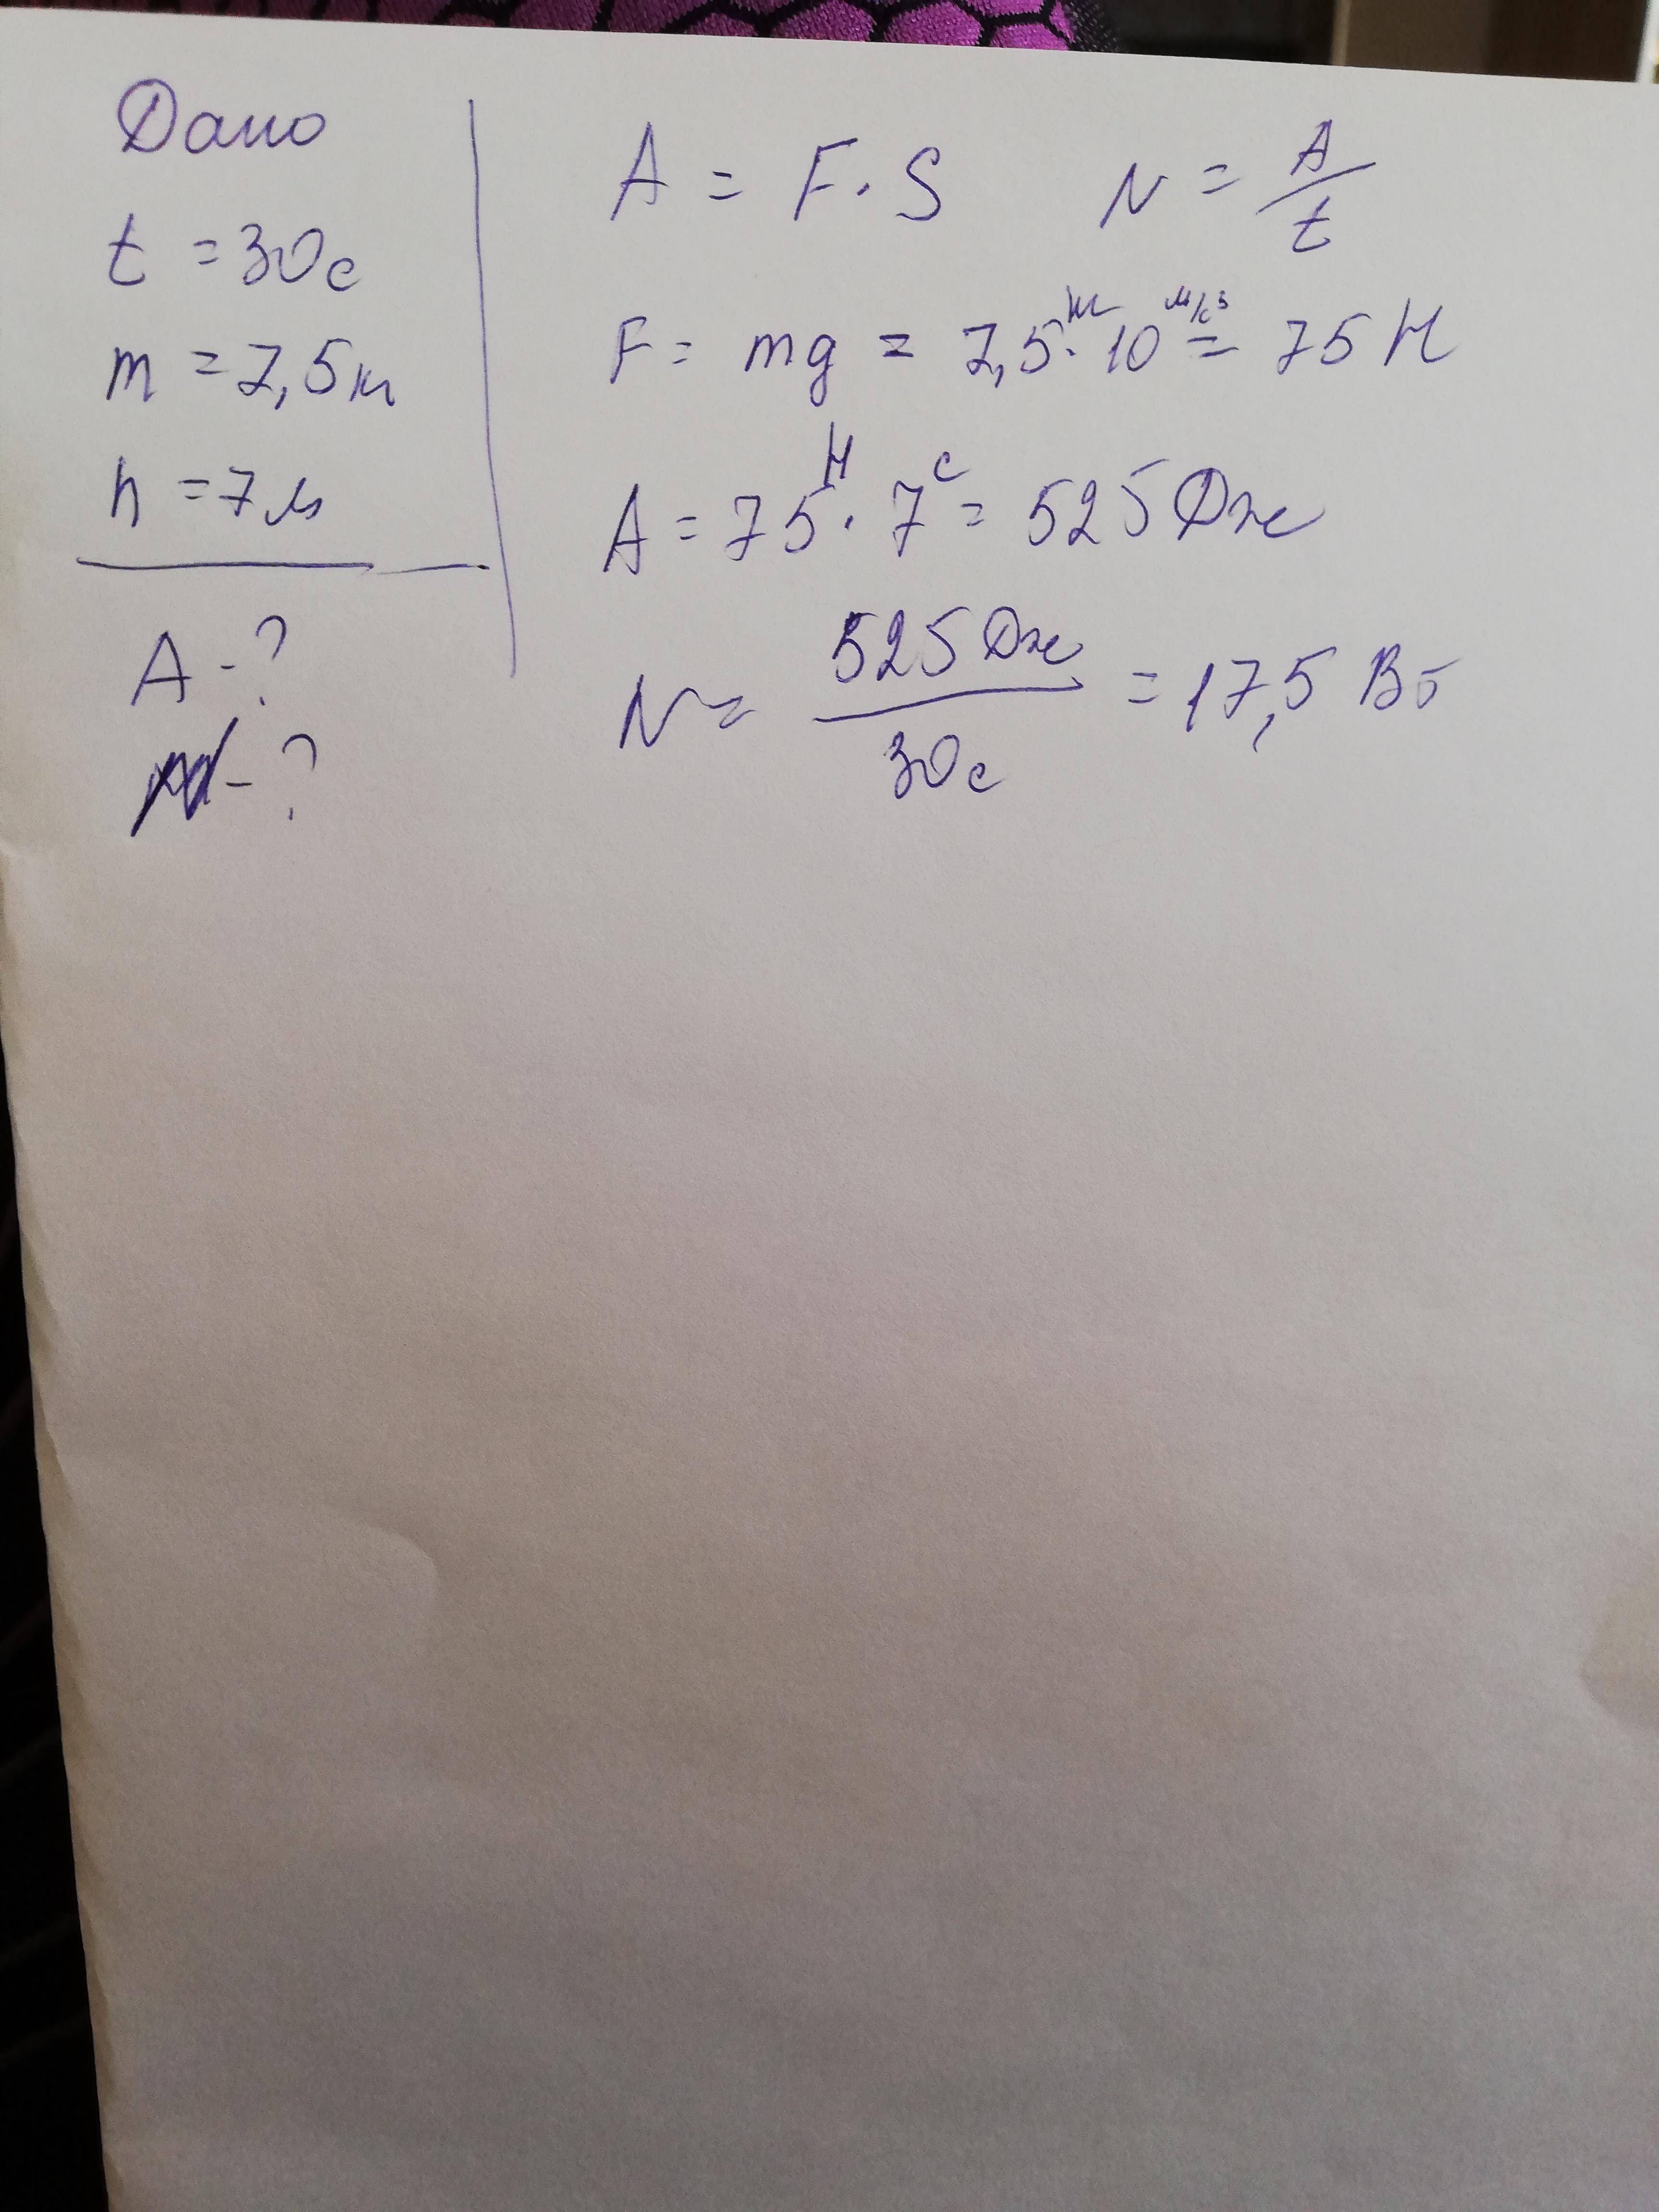 Дано
t = 30с
m = 7,5кг
h = 7м
A - ?
N - ?
A = F · S    N = A/t
F = mg = 7,5кг · 10 м/с² = 75 Н
A = 75Н · 7с = 525 Дж
N = 525 Дж / 30с = 17,5 Вт